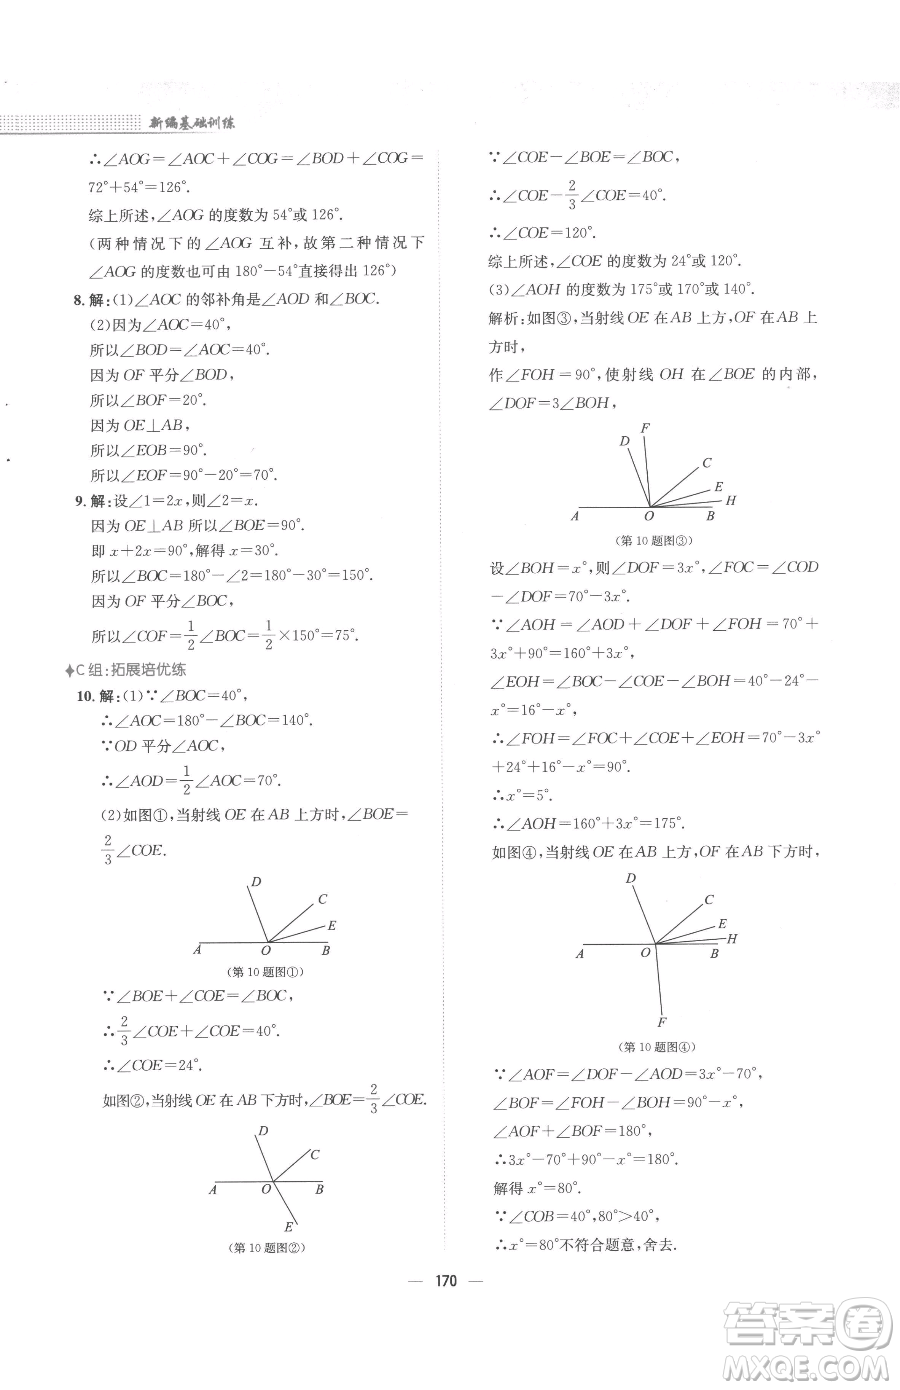 新编基础训练
∴∠AOG=∠AOC+∠COG=∠BOD+∠COG=
72°+54°=126°.
综上所述,∠AOG的度数为54°或126°.
(两种情况下的∠AOG互补,故第二种情况下
∠AOG的度数也可由180°-54°直接得出126°)
8.解:(1)∠AOC的邻补角是∠AOD和∠BOC.
(2)因为∠AOC=40°,
所以∠BOD=∠AOC=40°.
因为OF平分∠BOD,
所以∠BOF=20°.
因为OE⊥AB,
所以∠EOB=90°.
所以∠EOF=90°-20°=70°.
9.解:设∠1=2x,则∠2=x.
因为OE⊥AB所以∠BOE=90°.
即x+2x=90°,解得x=30°.
所以∠BOC=180°-∠2=180°-30°=150°.
因为OF平分∠BOC,
所以∠COF=1/2∠BOC=1/2×150°=75°.
C组:拓展培优练
10.解:(1)∵∠BOC=40°,
∴∠AOC=180°-∠BOC=140°.
∵OD平分∠AOC,
∴∠AOD=1/2∠AOC=70°.
(2)如图①,当射线OE在AB上方时,∠BOE=
2/3∠COE.
D
C
E
A O B
(第10题图①)
∵∠BOE+∠COE=∠BOC,
∴2/3∠COE+∠COE=40°.
∴∠COE=24°.
如图②,当射线OE在AB下方时,∠BOE=2/3∠COE.
D
C
A O B
E
(第10题图②)
∵∠COE-∠BOE=∠BOC,
∴∠COE-2/3∠COE=40°.
∴∠COE=120°.
综上所述,∠COE的度数为24°或120°.
(3)∠AOH的度数为175°或170°或140°.
解析:如图③,当射线OE在AB上方,OF在AB上
方时,
作∠FOH=90°,使射线OH在∠BOE的内部,
∠DOF=3∠BOH,
F
D
C
E
H
A O B
(第10题图③)
设∠BOH=x°,则∠DOF=3x°,∠FOC=∠COD
-∠DOF=70°-3x°.
∵∠AOH=∠AOD+∠DOF+∠FOH=70°+
3x°+90°=160°+3x°,
∠EOH=∠BOC-∠COE-∠BOH=40°-24°-
x°=16°-x°,
∴∠FOH=∠FOC+∠COE+∠EOH=70°-3x°
+24°+16°-x°=90°.
∴x°=5°.
∴∠AOH=160°+3x°=175°.
如图④,当射线OE在AB上方,OF在AB下方时,
D
C
E
H
A O B
F
(第10题图④)
∵∠AOF=∠DOF-∠AOD=3x°-70°,
∠BOF=∠FOH-∠BOH=90°-x°,
∠AOF+∠BOF=180°,
∴3x°-70°+90°-x°=180°.
解得x°=80°.
∵∠COB=40°,80°>40°,
∴x°=80°不符合题意,舍去.
— 170 —
答案圈
MXQE.COM